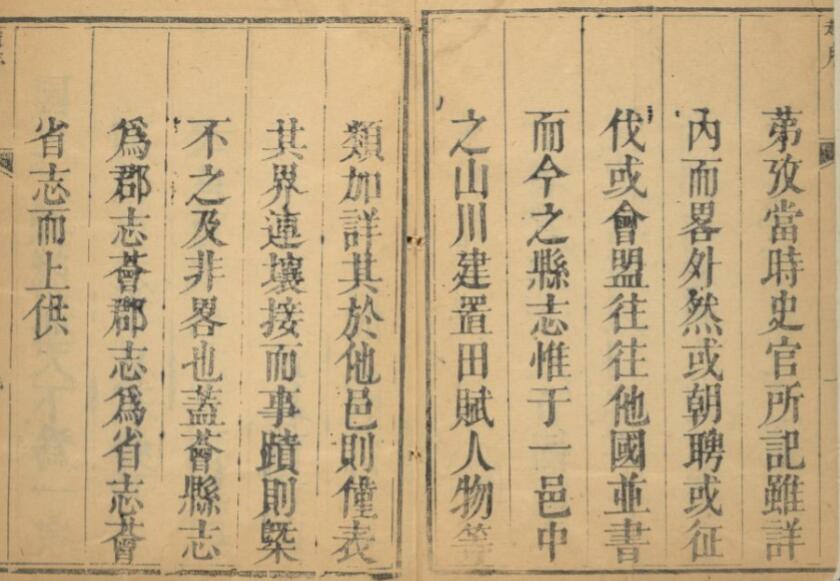 苐攷當時史官所記雖詳
內而畧外然或朝聘或征
伐或會盟往往他國並書
而今之縣志惟于一邑中
之山川建置田賦人物等
類加詳其於他邑則僅表
其界連壤接而事蹟則槩
不之及非畧也蓋薈縣志
爲郡志薈郡志爲省志薈
省志而上供